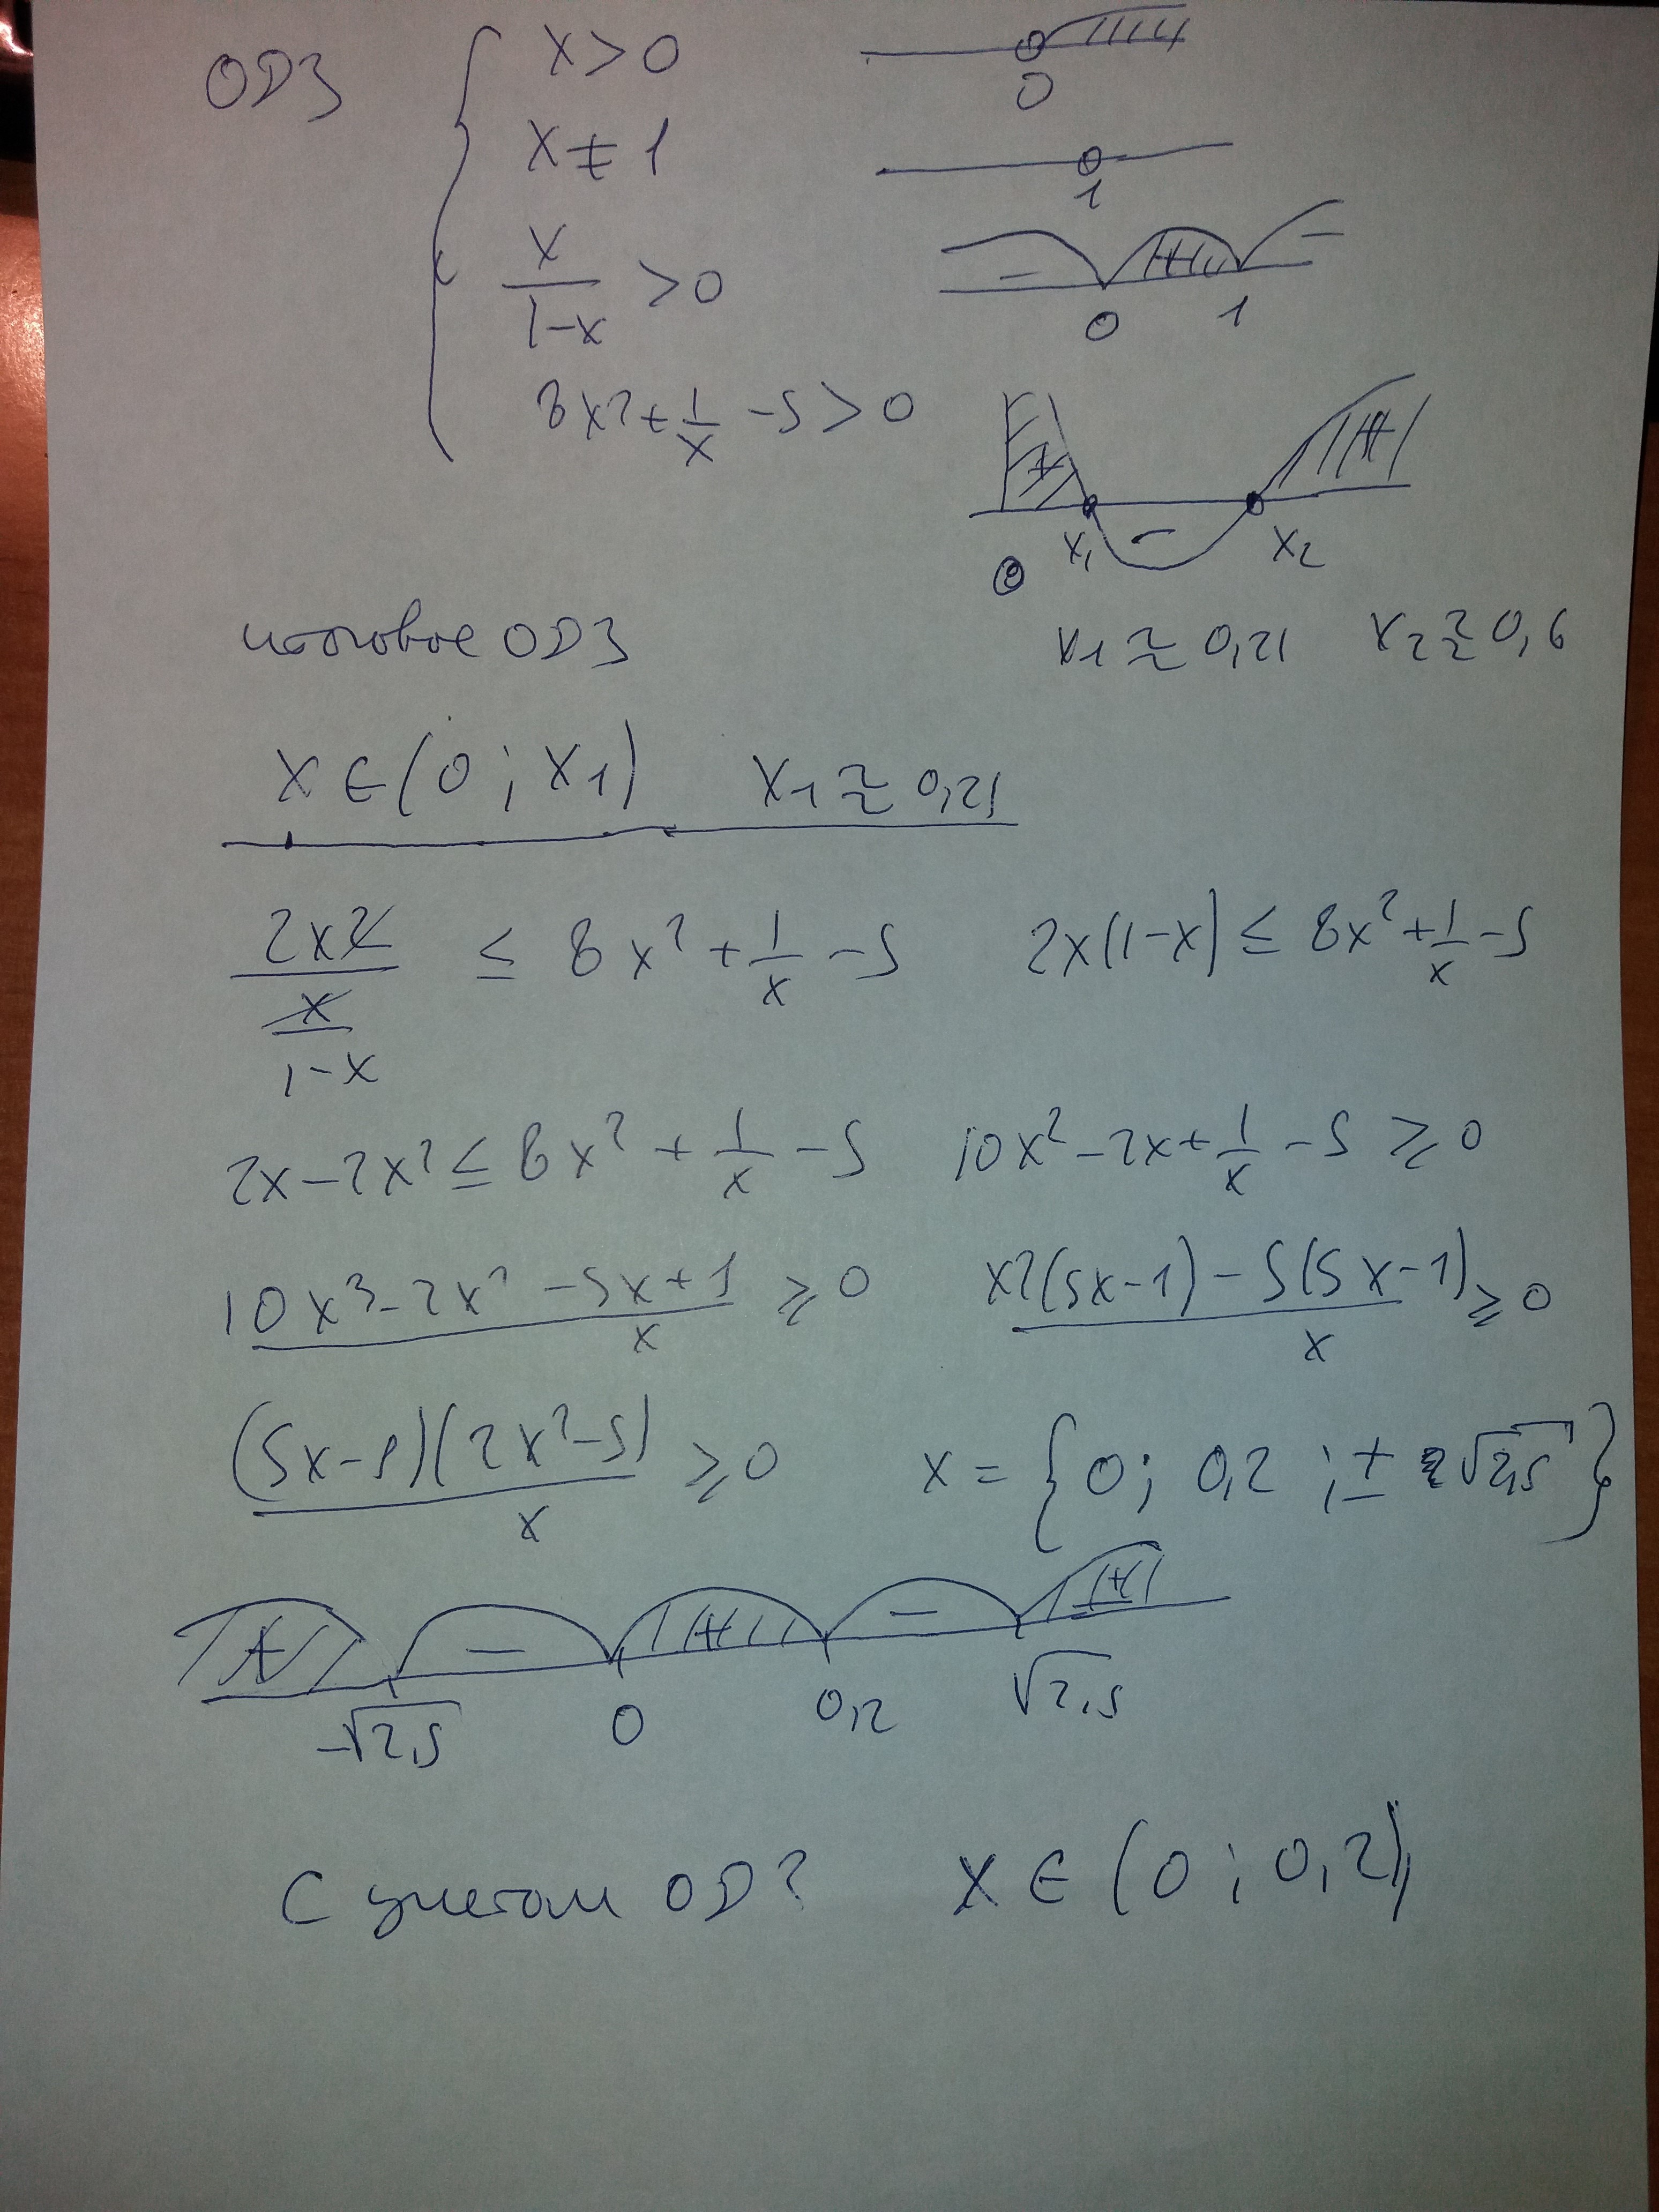 ОДЗ { x > 0
x ≠ 1
x/(1-x) > 0
8x² + 1/x - 5 > 0
0
1
- + -
0 1
+ - +
0 x₁ x₂
итоговое ОДЗ x₁ ≈ 0,21 x₂ ≈ 0,6
x ∈ (0 ; x₁) x₁ ≈ 0,21
2x²/(x/(1-x)) ≤ 8x² + 1/x - 5 2x(1-x) ≤ 8x² + 1/x - 5
2x - 2x² ≤ 8x² + 1/x - 5 10x² - 2x + 1/x - 5 ≥ 0
(10x³ - 2x² - 5x + 1)/x ≥ 0 (x²(5x-1) - 5(5x-1))/x ≥ 0
((5x-1)(2x²-5))/x ≥ 0 x = {0; 0,2 ; ± √2,5}
+ - + - +
-√2,5 0 0,2 √2,5
С учетом ОДЗ x ∈ (0 ; 0,2)